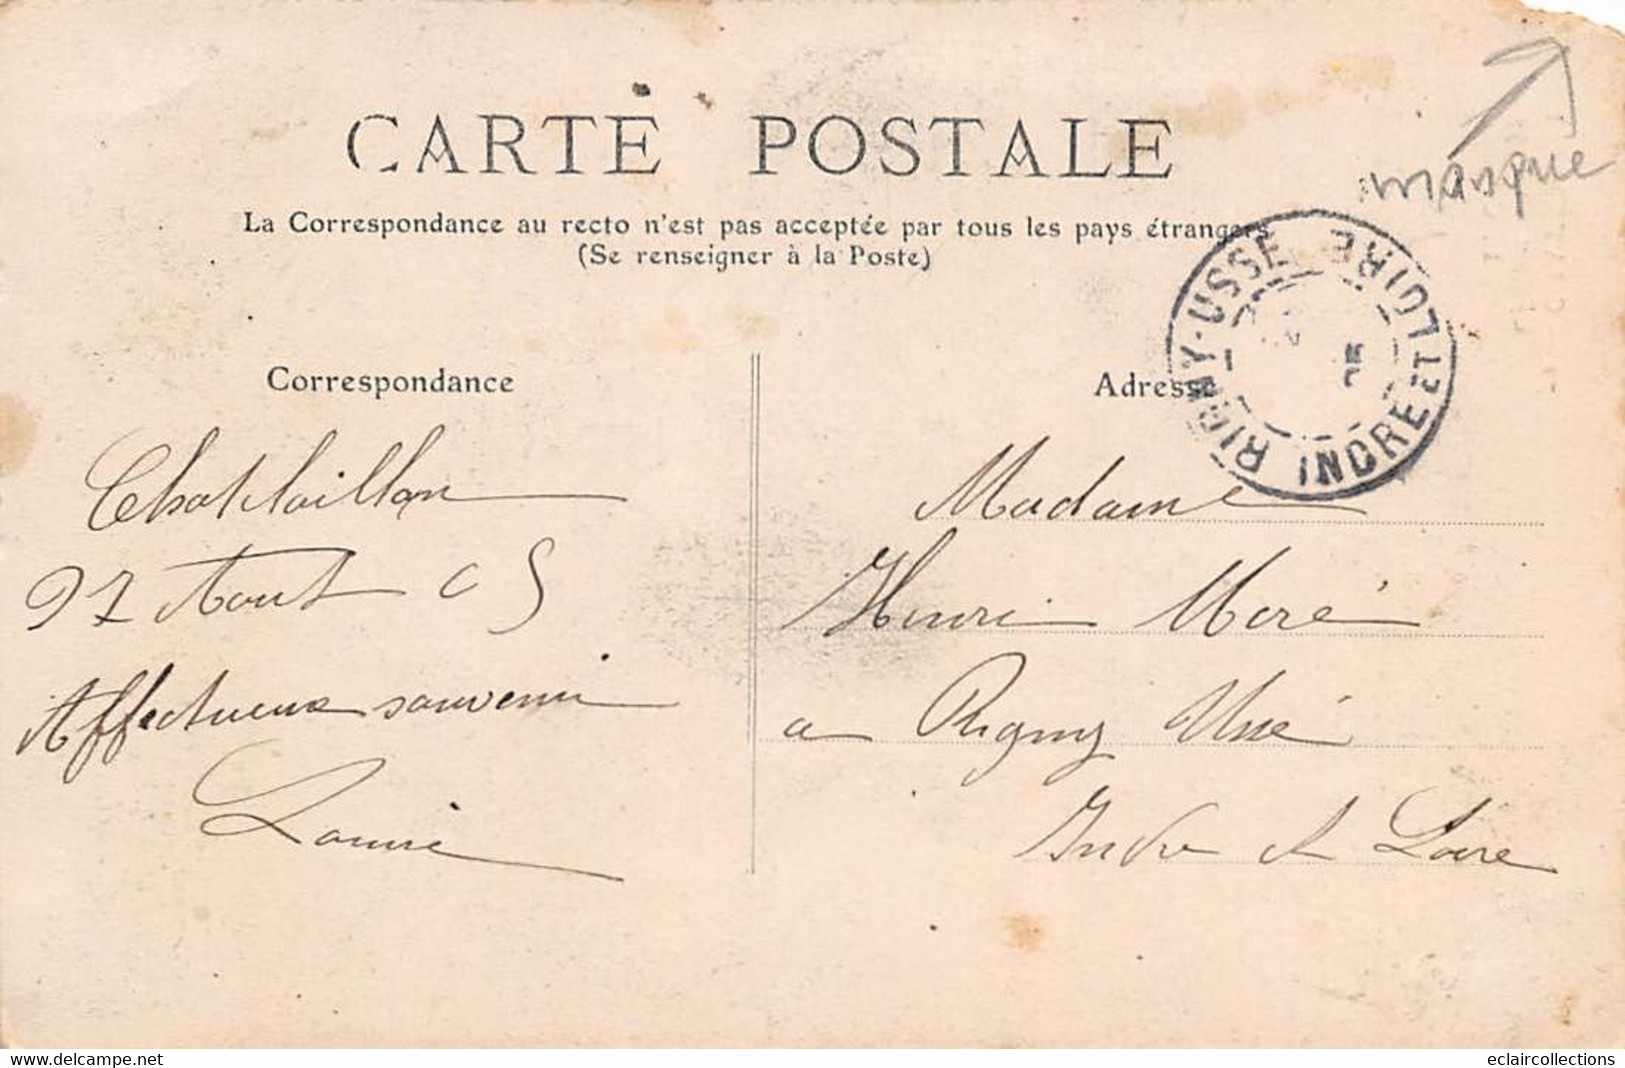 CARTE POSTALE
manque
La Correspondance au recto n'est pas acceptée par tous les pays étrangers
(Se renseigner à la Poste)
RIGNY-USSÉ INDRE ET LOIRE
05
Correspondance
Adresse
Chatelaillon
27 Aout 05
Affectueux souvenir
Louise
Madame
Henri Moré
a Rigny Ussé
Indre et Loire
www.delcampe.net
eclaircollections